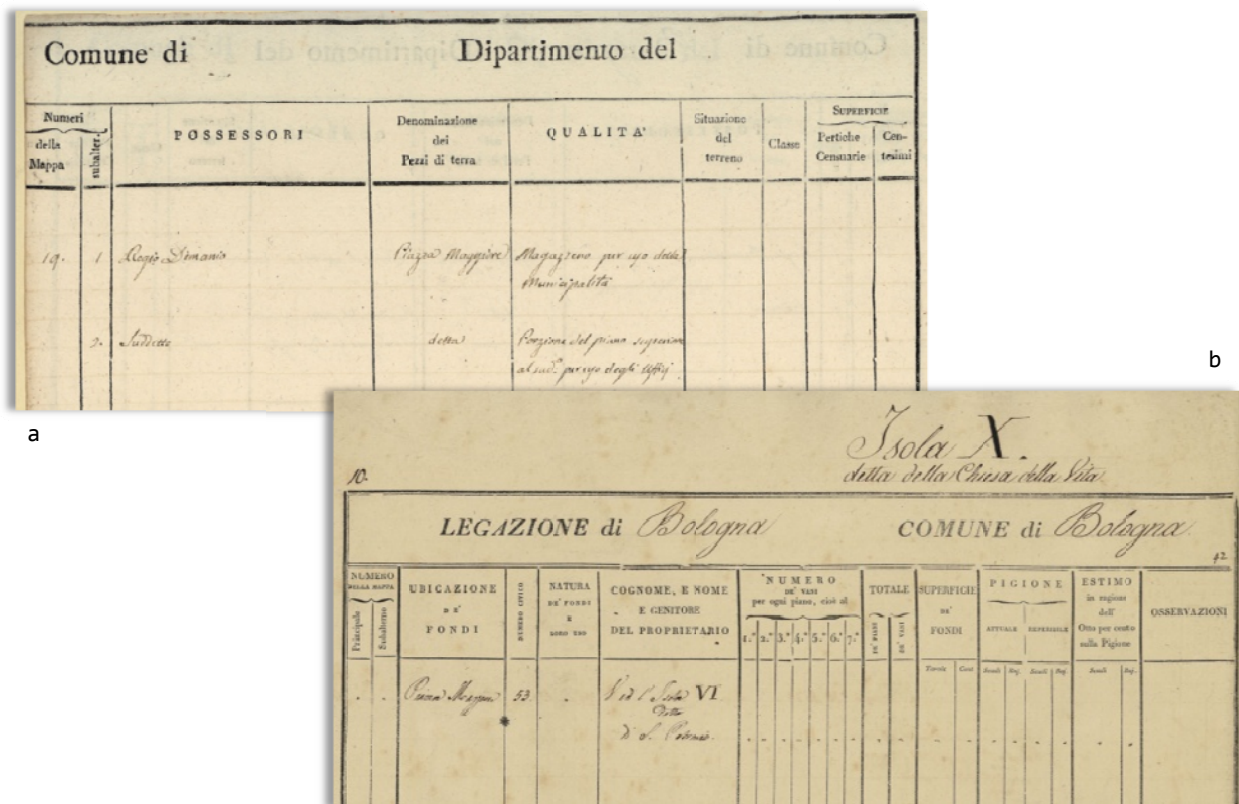 Comune di Dipartimento del
Numeri
della
Mappa
subalter.
POSSESSORI
Denominazione
dei
Pezzi di terra
QUALITA'
Situazione
del
terreno
Classe
SUPERFICIE
Pertiche
Censuarie
Cen-
tesimi
19. 1 Regio Demanio Piazza Maggiore Magazzeno per uso della
Municipalità
2. Suddetto detta Porzione del piano superiore
al sud.º per uso degli Uffizj
a
b
Isola X.
10. detta della Chiesa della Vita
LEGAZIONE di Bologna COMUNE di Bologna
42
NUMERO
DELLA MAPPA
Principale
Subalterno
UBICAZIONE
DE'
FONDI
NUMERO CIVICO
NATURA
DE' FONDI
E
LORO USO
COGNOME, E NOME
E GENITORE
DEL PROPRIETARIO
NUMERO
DE' VASI
per ogni piano, cioè al
1.º 2.º 3.º 4.º 5.º 6.º 7.º
TOTALE
DE' PIANI
DE' VASI
SUPERFICIE
DE'
FONDI
Tavole Cent.
PIGIONE
ATTUALE REPERIBILE
Scudi Baj. Scudi Baj.
ESTIMO
in ragione
dell'
Otto per cento
sulla Pigione
Scudi Baj.
OSSERVAZIONI
Piazza Maggiore 53 Ved. l'Isola VI
detta
di S. Petronio